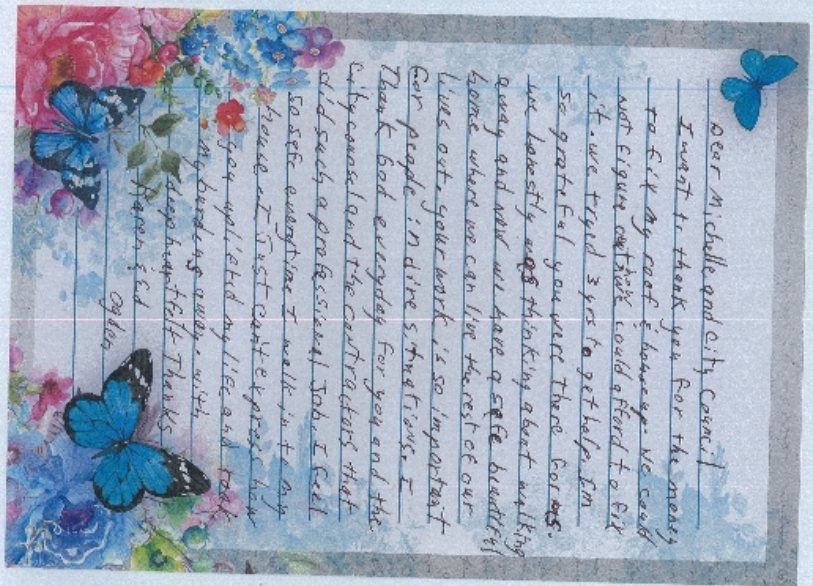 Dear Michelle and City Council
I want to thank you for the money
to fix my roof & house up we could
not figure out how could afford to fix
it. we tryed 3 yrs to get help. I'm
so grateful you were there for us.
we honestly was thinking about walking
away and now we have a safe beautiful
home where we can live the rest of our
lives out. your work is so important
for people in dire situations. I
Thank God everyday for you and the
City counsel and the contractors that
did such a professional Job. I feel
so safe everytime I walk in to my
house. I Just can't express how
you uplifted my life and took
my burdens away. with
deep heartfelt Thanks
Karen & Ed
Ogden